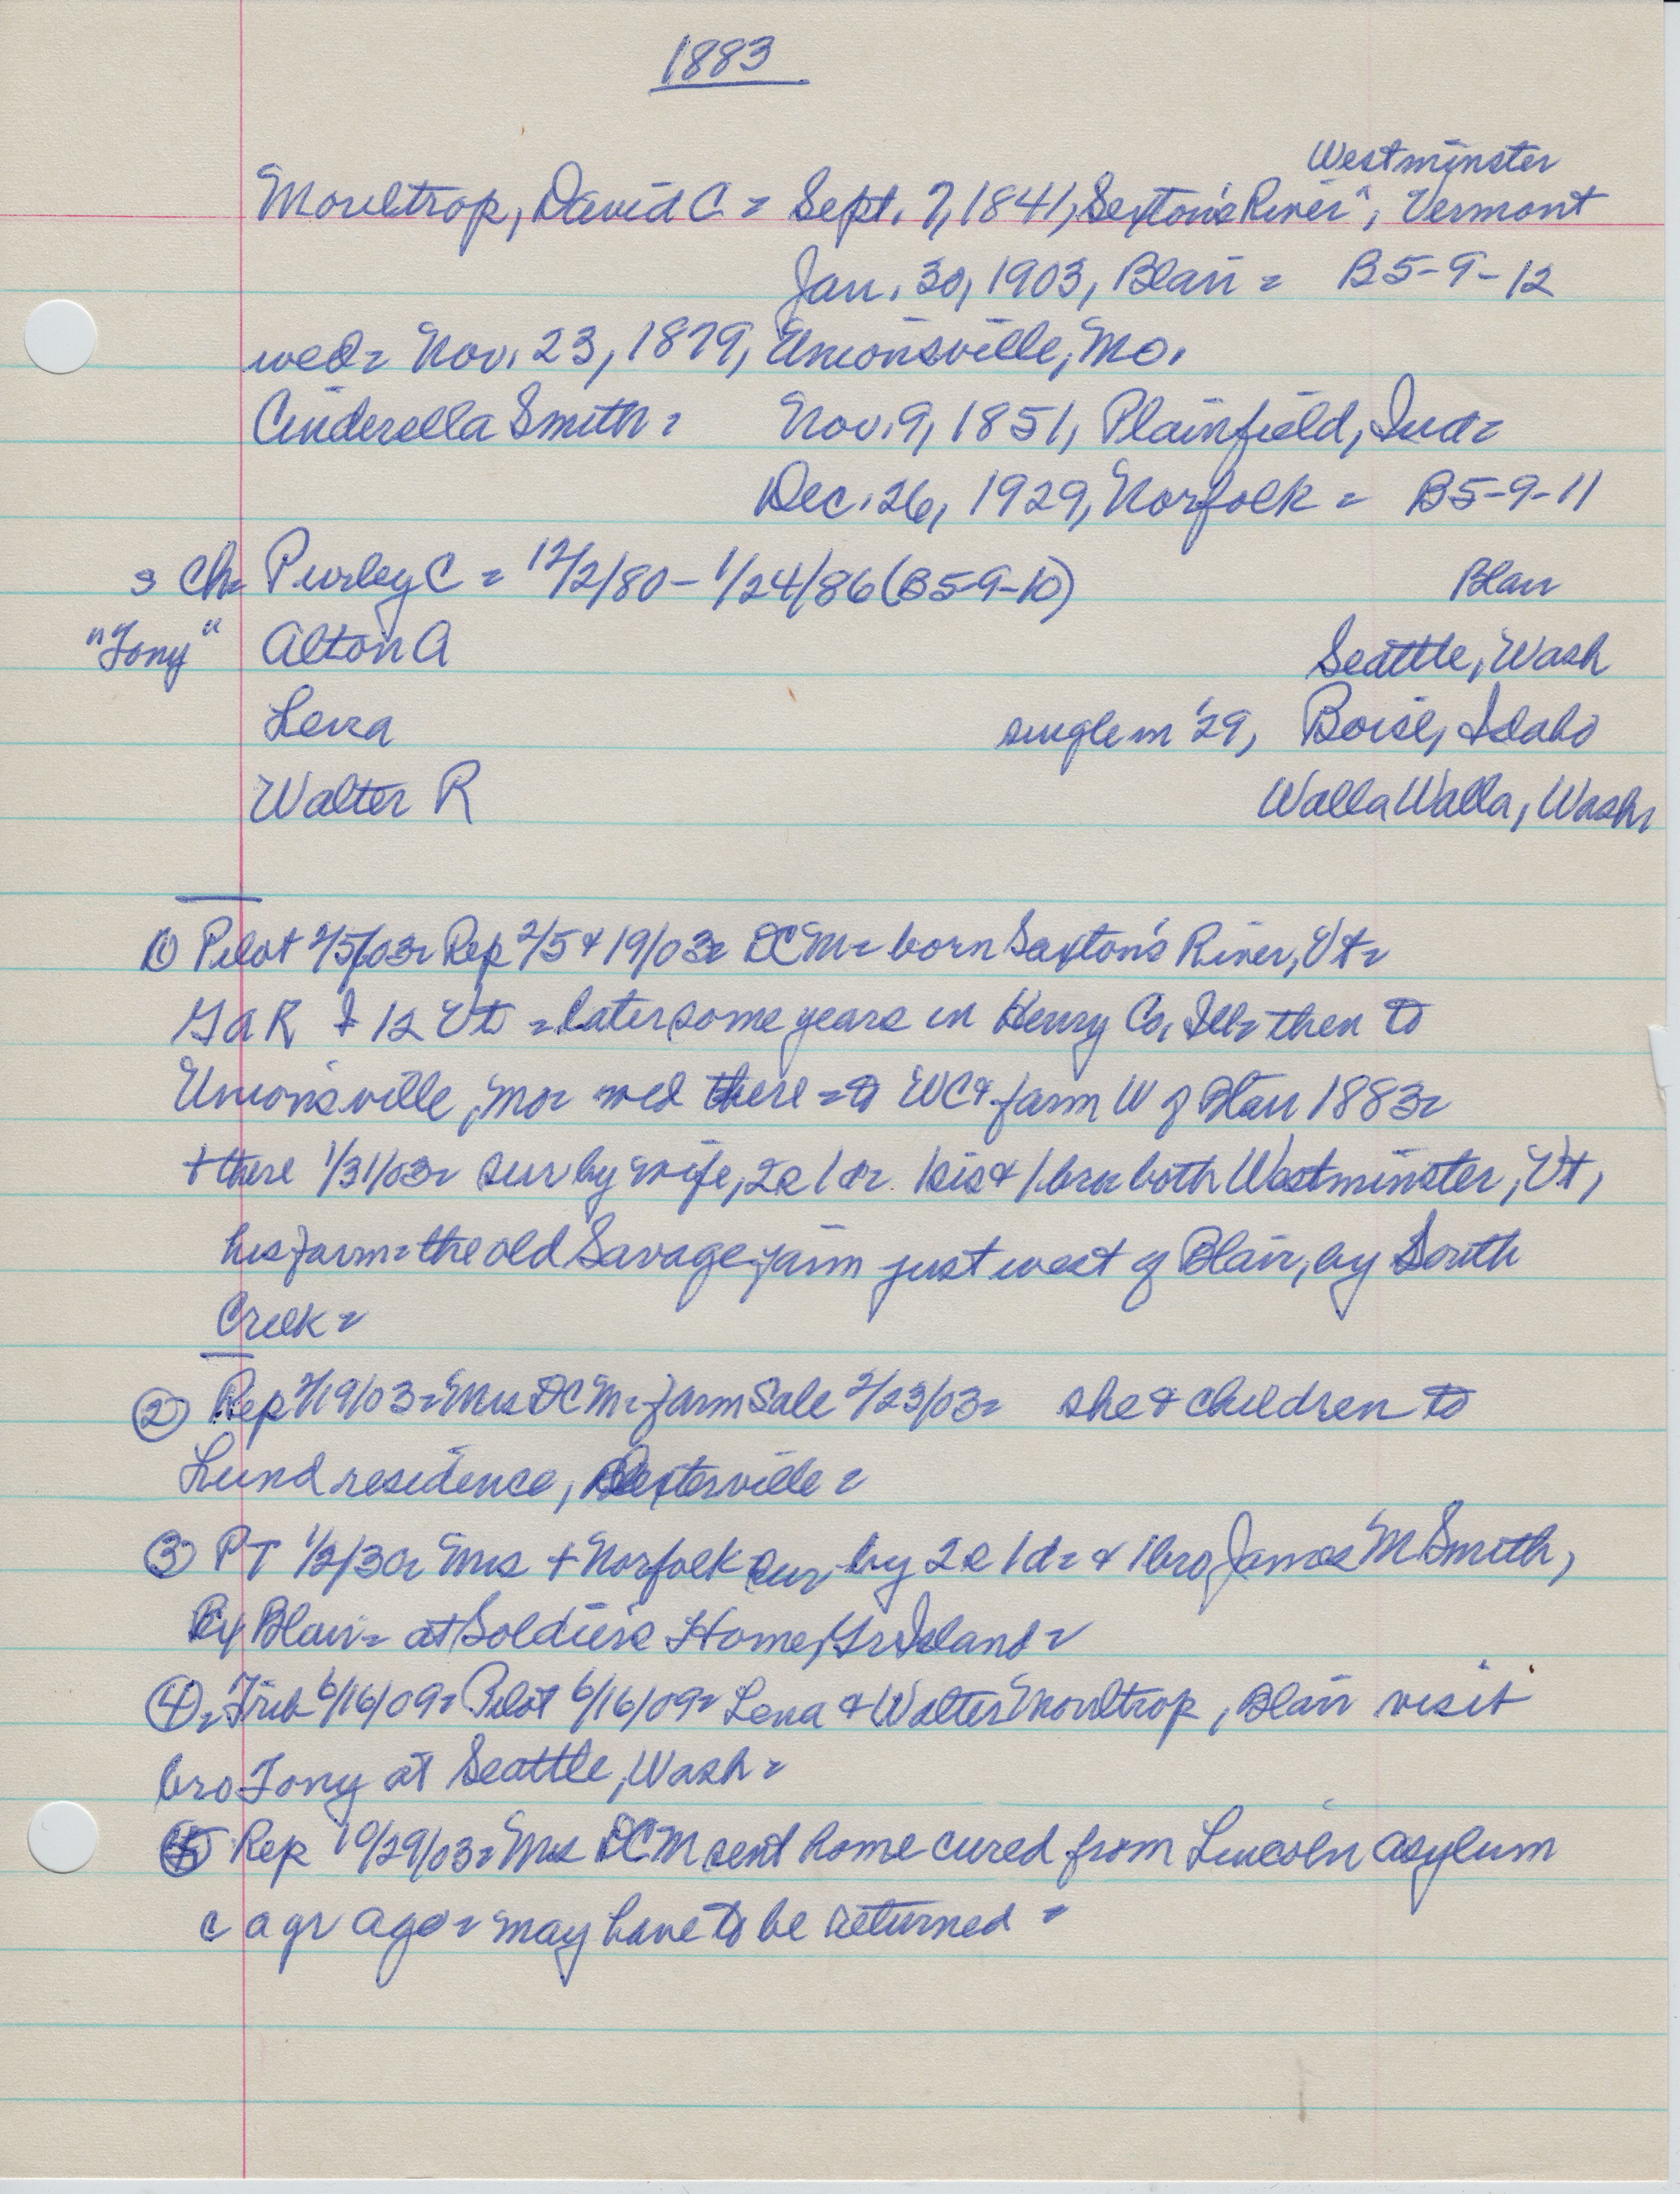 1883
Westminster
Moultrop, David C = Sept. 7, 1841, Sexton's River ^, Vermont
Jan. 30, 1903, Blair = B5-9-12
wed = Nov. 23, 1879, Unionsville, Mo.
Cinderella Smith = Nov. 9, 1851, Plainfield, Ind =
Dec. 26, 1929, Norfolk = B5-9-11
Ch = Purley C = 12/2/80 - 1/24/86 (B5-9-10) Blair
"Tony" Alton A Seattle, Wash
Lena single in '29, Boise, Idaho
Walter R Walla Walla, Wash.
① Pilot 2/5/03 = Rep 2/5 & 19/03 = DCM = born Saxton's River, Vt =
GAR I 12 Vt = later some years in Henry Co, Ill = then to
Unionsville, Mo = wed there = to WC & farm W of Blair 1883 =
+ there 1/31/03 = sur by wife, 2s 1 d = 1 sis & 1 bro = both Westminster, Vt,
his farm = the old Savage farm just west of Blair, by South
Creek =
② Rep 2/19/03 = Mrs DCM = farm Sale 2/23/03 = she & children to
Lund residence, Dexterville =
③ PT 1/2/30 = Mrs + Norfolk sur by 2s 1 d = & 1 bro James M Smith,
Ex Blair = at Soldiers Home, Gr Island =
④ = Trib 6/16/09 = Pilot 6/16/09 = Lena & Walter Moultrop, Blair visit
bro Tony at Seattle, Wash =
⑤ Rep 10/29/03 = Mrs DCM sent home cured from Lincoln asylum
c a yr ago = may have to be returned =